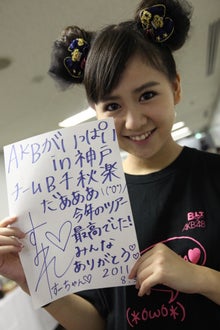 AKBがいっぱい
in 神戸
チームB千秋楽
だあああ！(°∀°)
今年のツアー
最高でした！
みんな
ありがとう♡
すみれ♡
すーちゃん♡
2011
8.
AKB48
(*OωO*)